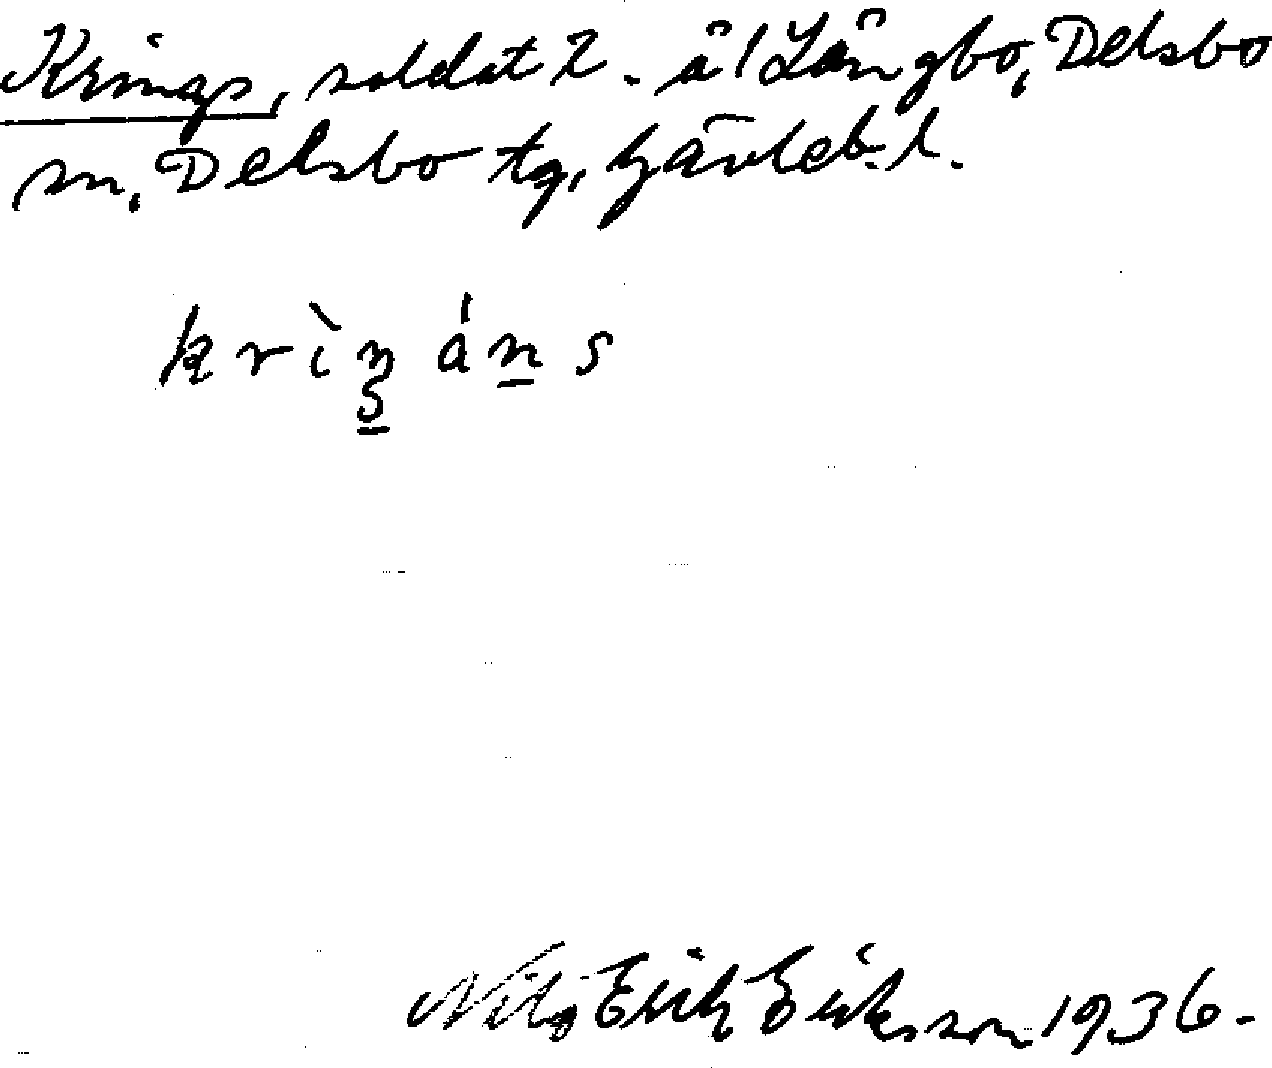 Krings, soldat 2. å! Långbo, Delsbo
sn, Delsbo tg, Gävleb. l.
krìŋáns
Nils Erik Eriksson 1936.